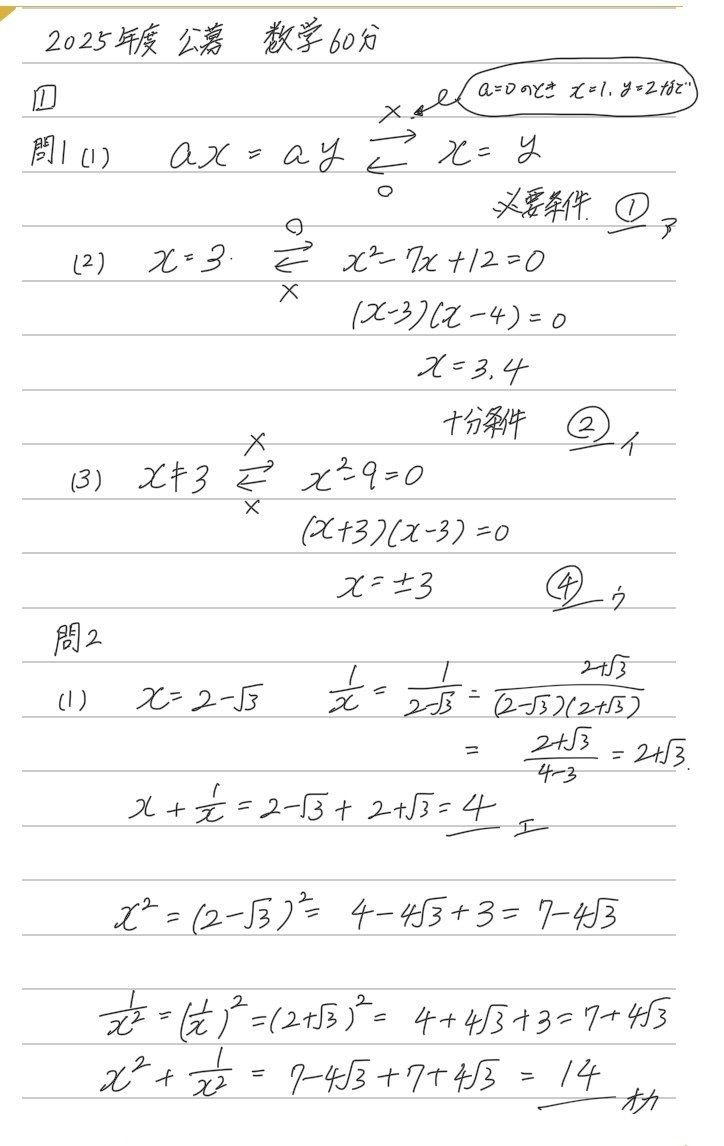 2025年度 公募 数学60分
1
a=0のとき x=1, y=2など
問1 (1) ax = ay ⇄ x = y
×
○
必要条件 ① ア
(2) x = 3 ⇄ x² - 7x + 12 = 0
○
×
(x-3)(x-4) = 0
x = 3, 4
十分条件 ② イ
(3) x ≠ 3 ⇄ x² - 9 = 0
×
×
(x+3)(x-3) = 0
x = ±3 ④ ウ
問2
(1) x = 2-√3 1/x = 1/(2-√3) = (2+√3)/((2-√3)(2+√3))
= (2+√3)/(4-3) = 2+√3.
x + 1/x = 2-√3 + 2+√3 = 4 エ
x² = (2-√3)² = 4 - 4√3 + 3 = 7-4√3
1/x² = (1/x)² = (2+√3)² = 4 + 4√3 + 3 = 7 + 4√3
x² + 1/x² = 7-4√3 + 7 + 4√3 = 14 オカ